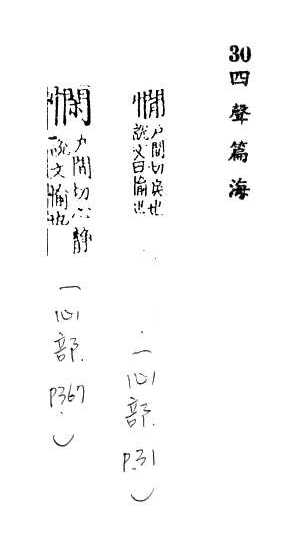 30四聲篇海
憪
戶間切也
說文曰愉也
（心部. P.31）
戶間切心静
説文愉也
（心部. P367）